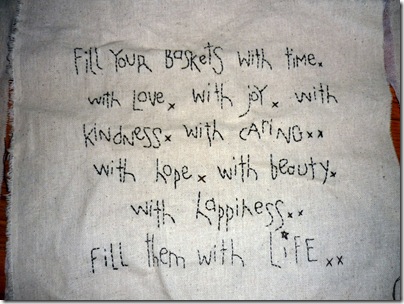 Fill Your Baskets with time x
with Love x with joy x with
kindness x with caring x x
with hope x with beauty x
with happiness x x
Fill them with LiFE x x